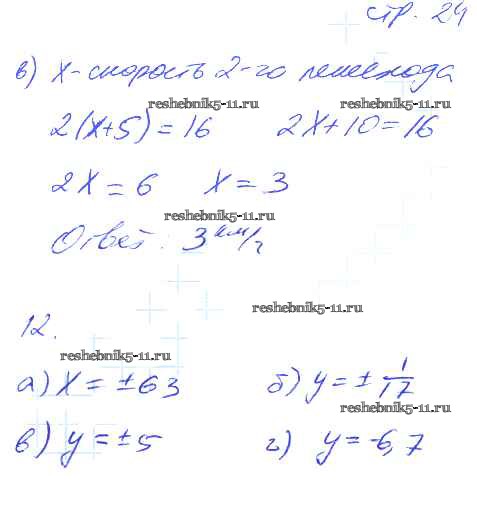 стр. 24
в) x - скорость 2-го пешехода
reshebnik5-11.ru reshebnik5-11.ru
2(x+5) = 16 2x+10 = 16
2x = 6 x = 3
reshebnik5-11.ru
Ответ: 3 км/г
reshebnik5-11.ru
12.
reshebnik5-11.ru
а) x = ±63 б) y = ± 1/17
reshebnik5-11.ru
в) y = ±5 г) y = -6,7